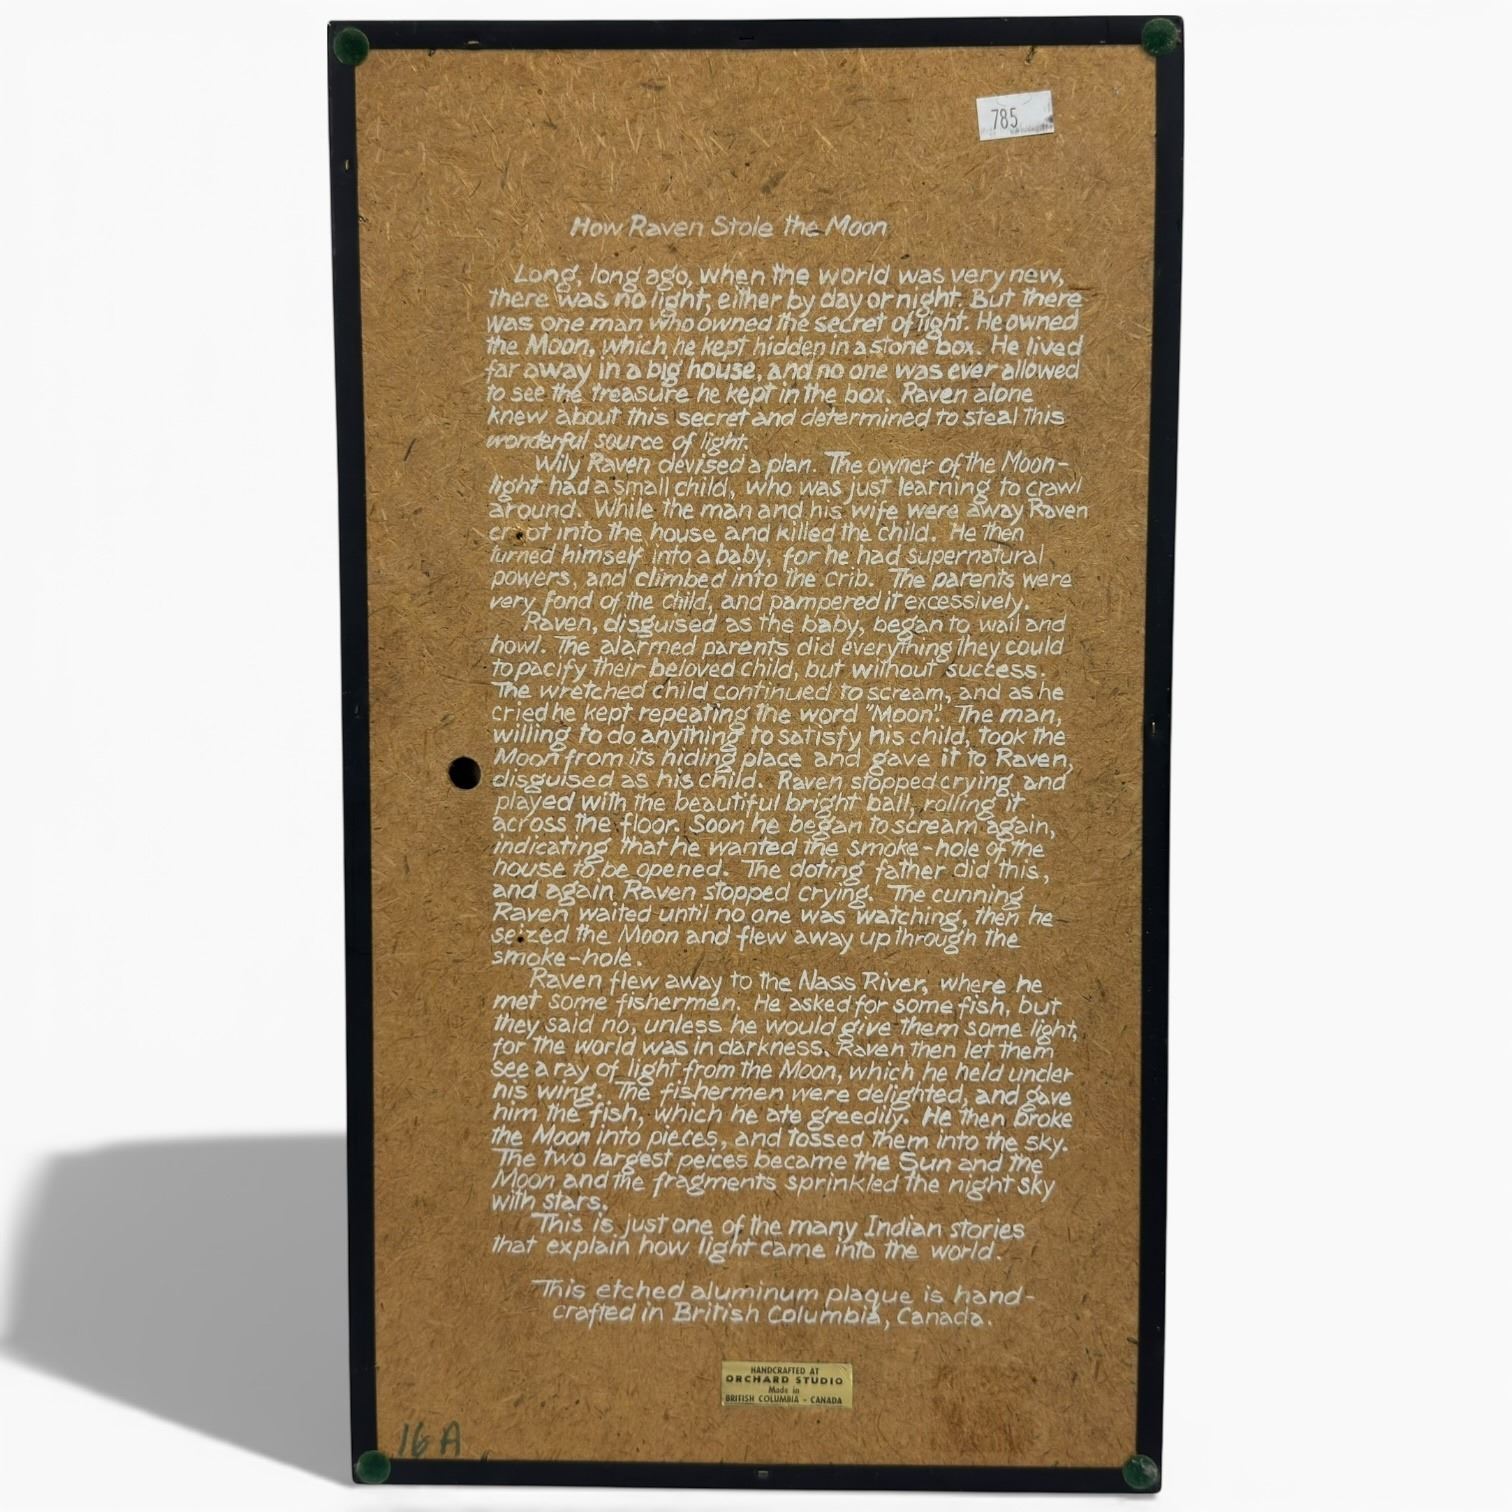 785
How Raven Stole the Moon
Long, long ago, when the world was very new,
there was no light, either by day or night. But there
was one man who owned the secret of light. He owned
the Moon, which he kept hidden in a stone box. He lived
far away in a big house, and no one was ever allowed
to see the treasure he kept in the box. Raven alone
knew about this secret and determined to steal this
wonderful source of light.
Wily Raven devised a plan. The owner of the Moon-
light had a small child, who was just learning to crawl
around. While the man and his wife were away Raven
crept into the house and killed the child. He then
turned himself into a baby, for he had supernatural
powers, and climbed into the crib. The parents were
very fond of the child, and pampered it excessively.
Raven, disguised as the baby, began to wail and
howl. The alarmed parents did everything they could
to pacify their beloved child, but without success.
The wretched child continued to scream, and as he
cried he kept repeating the word "Moon". The man,
willing to do anything to satisfy his child, took the
Moon from its hiding place and gave it to Raven,
disguised as his child. Raven stopped crying and
played with the beautiful bright ball, rolling it
across the floor. Soon he began to scream again,
indicating that he wanted the smoke-hole of the
house to be opened. The doting father did this,
and again Raven stopped crying. The cunning
Raven waited until no one was watching, then he
seized the Moon and flew away up through the
smoke-hole.
Raven flew away to the Nass River, where he
met some fishermen. He asked for some fish, but
they said no, unless he would give them some light,
for the world was in darkness. Raven then let them
see a ray of light from the Moon, which he held under
his wing. The fishermen were delighted, and gave
him the fish, which he ate greedily. He then broke
the Moon into pieces, and tossed them into the sky.
The two largest peices became the Sun and the
Moon and the fragments sprinkled the night sky
with stars.
This is just one of the many Indian stories
that explain how light came into the world.
This etched aluminum plaque is hand-
crafted in British Columbia, Canada.
HANDCRAFTED AT
ORCHARD STUDIO
Made in
BRITISH COLUMBIA - CANADA
16 A